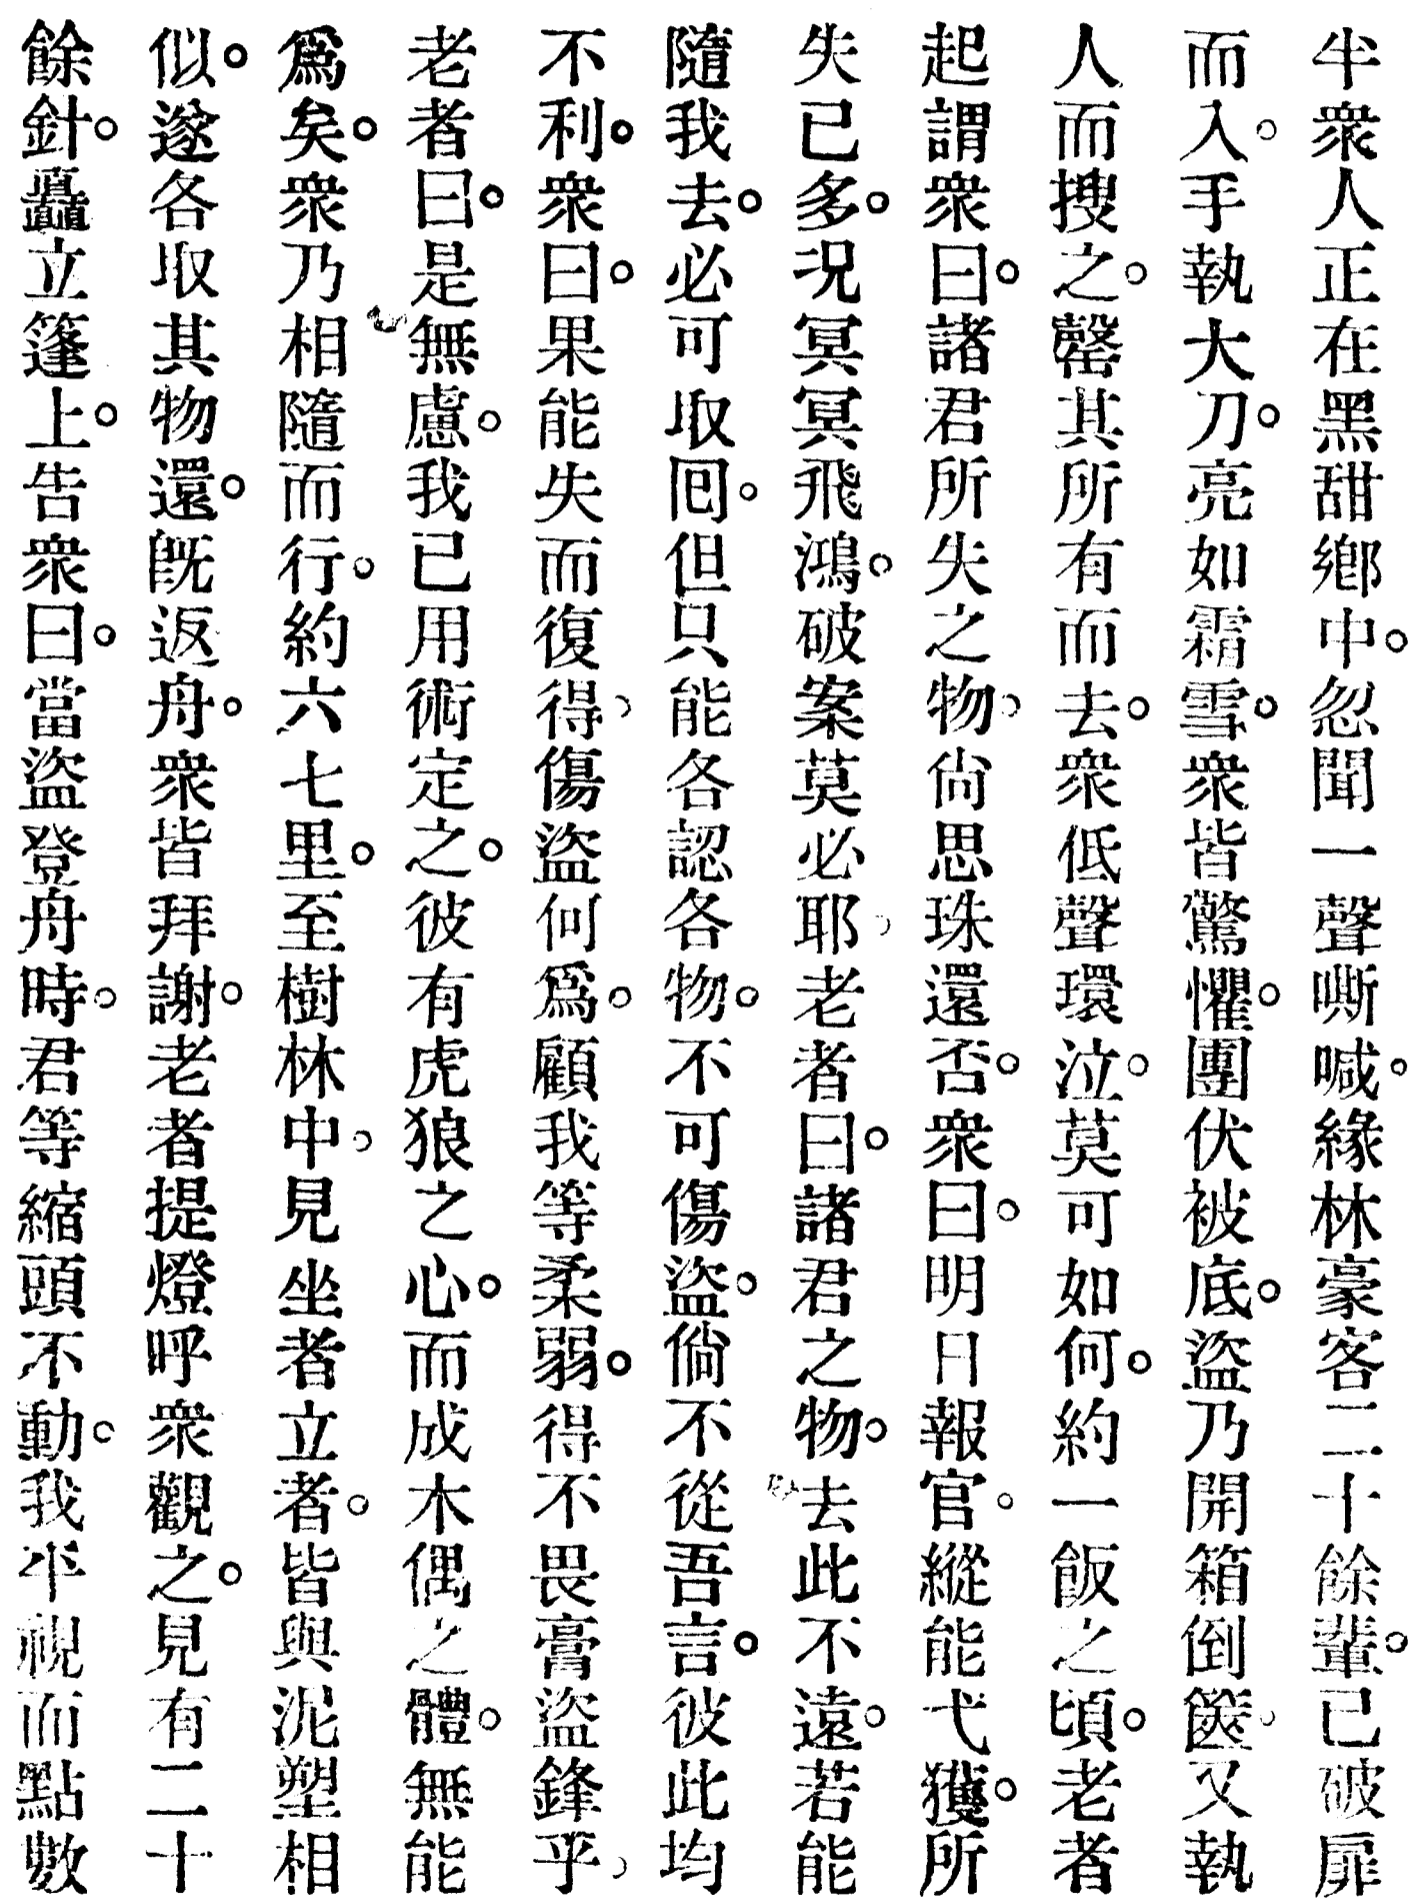 半衆人正在黑甜鄉中。忽聞一聲嘶喊。緣林豪客二十餘輩。已破扉
而入。手執大刀。亮如霜雪。衆皆驚懼。團伏被底。盜乃開箱倒篋。又執
人而搜之。罄其所有而去。衆低聲環泣。莫可如何。約一飯之頃。老者
起謂衆曰。諸君所失之物。尙思珠還否。衆曰。明日報官。縱能弋獲。所
失已多。况冥冥飛鴻。破案莫必耶。老者曰。諸君之物。去此不遠。若能
隨我去。必可取囘。但只能各認各物。不可傷盜。倘不從吾言。彼此均
不利。衆曰。果能失而復得、傷盜何爲。顧我等柔弱。得不畏膏盜鋒乎、
老者曰。是無慮。我已用術定之。彼有虎狼之心。而成木偶之體。無能
爲矣。衆乃相隨而行。約六七里。至樹林中。見坐者立者。皆與泥塑相
似。遂各取其物還。旣返舟。衆皆拜謝。老者提燈呼衆觀之。見有二十
餘針。矗立篷上。告衆曰。當盜登舟時。君等縮頭不動。我平視而點數